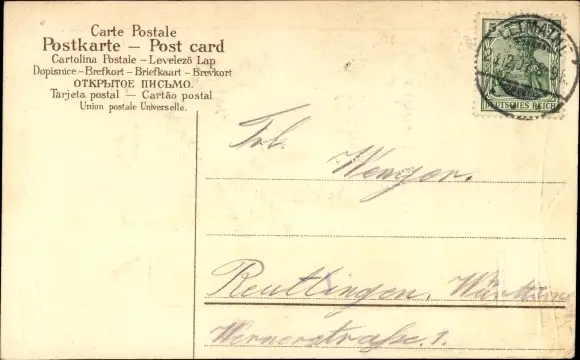 Carte Postale
Postkarte — Post card
Cartolina Postale – Levelező Lap
Dopisnice – Brefkort – Briefkaart – Brevkort
ОТКРЫТОЕ ПИСЬМО.
Tarjeta postal – Cartão postal
Union postale Universelle.
5
DEUTSCHES REICH
Frl.
Wenger.
Reutlingen. Württem
Wernerstraße. 1.